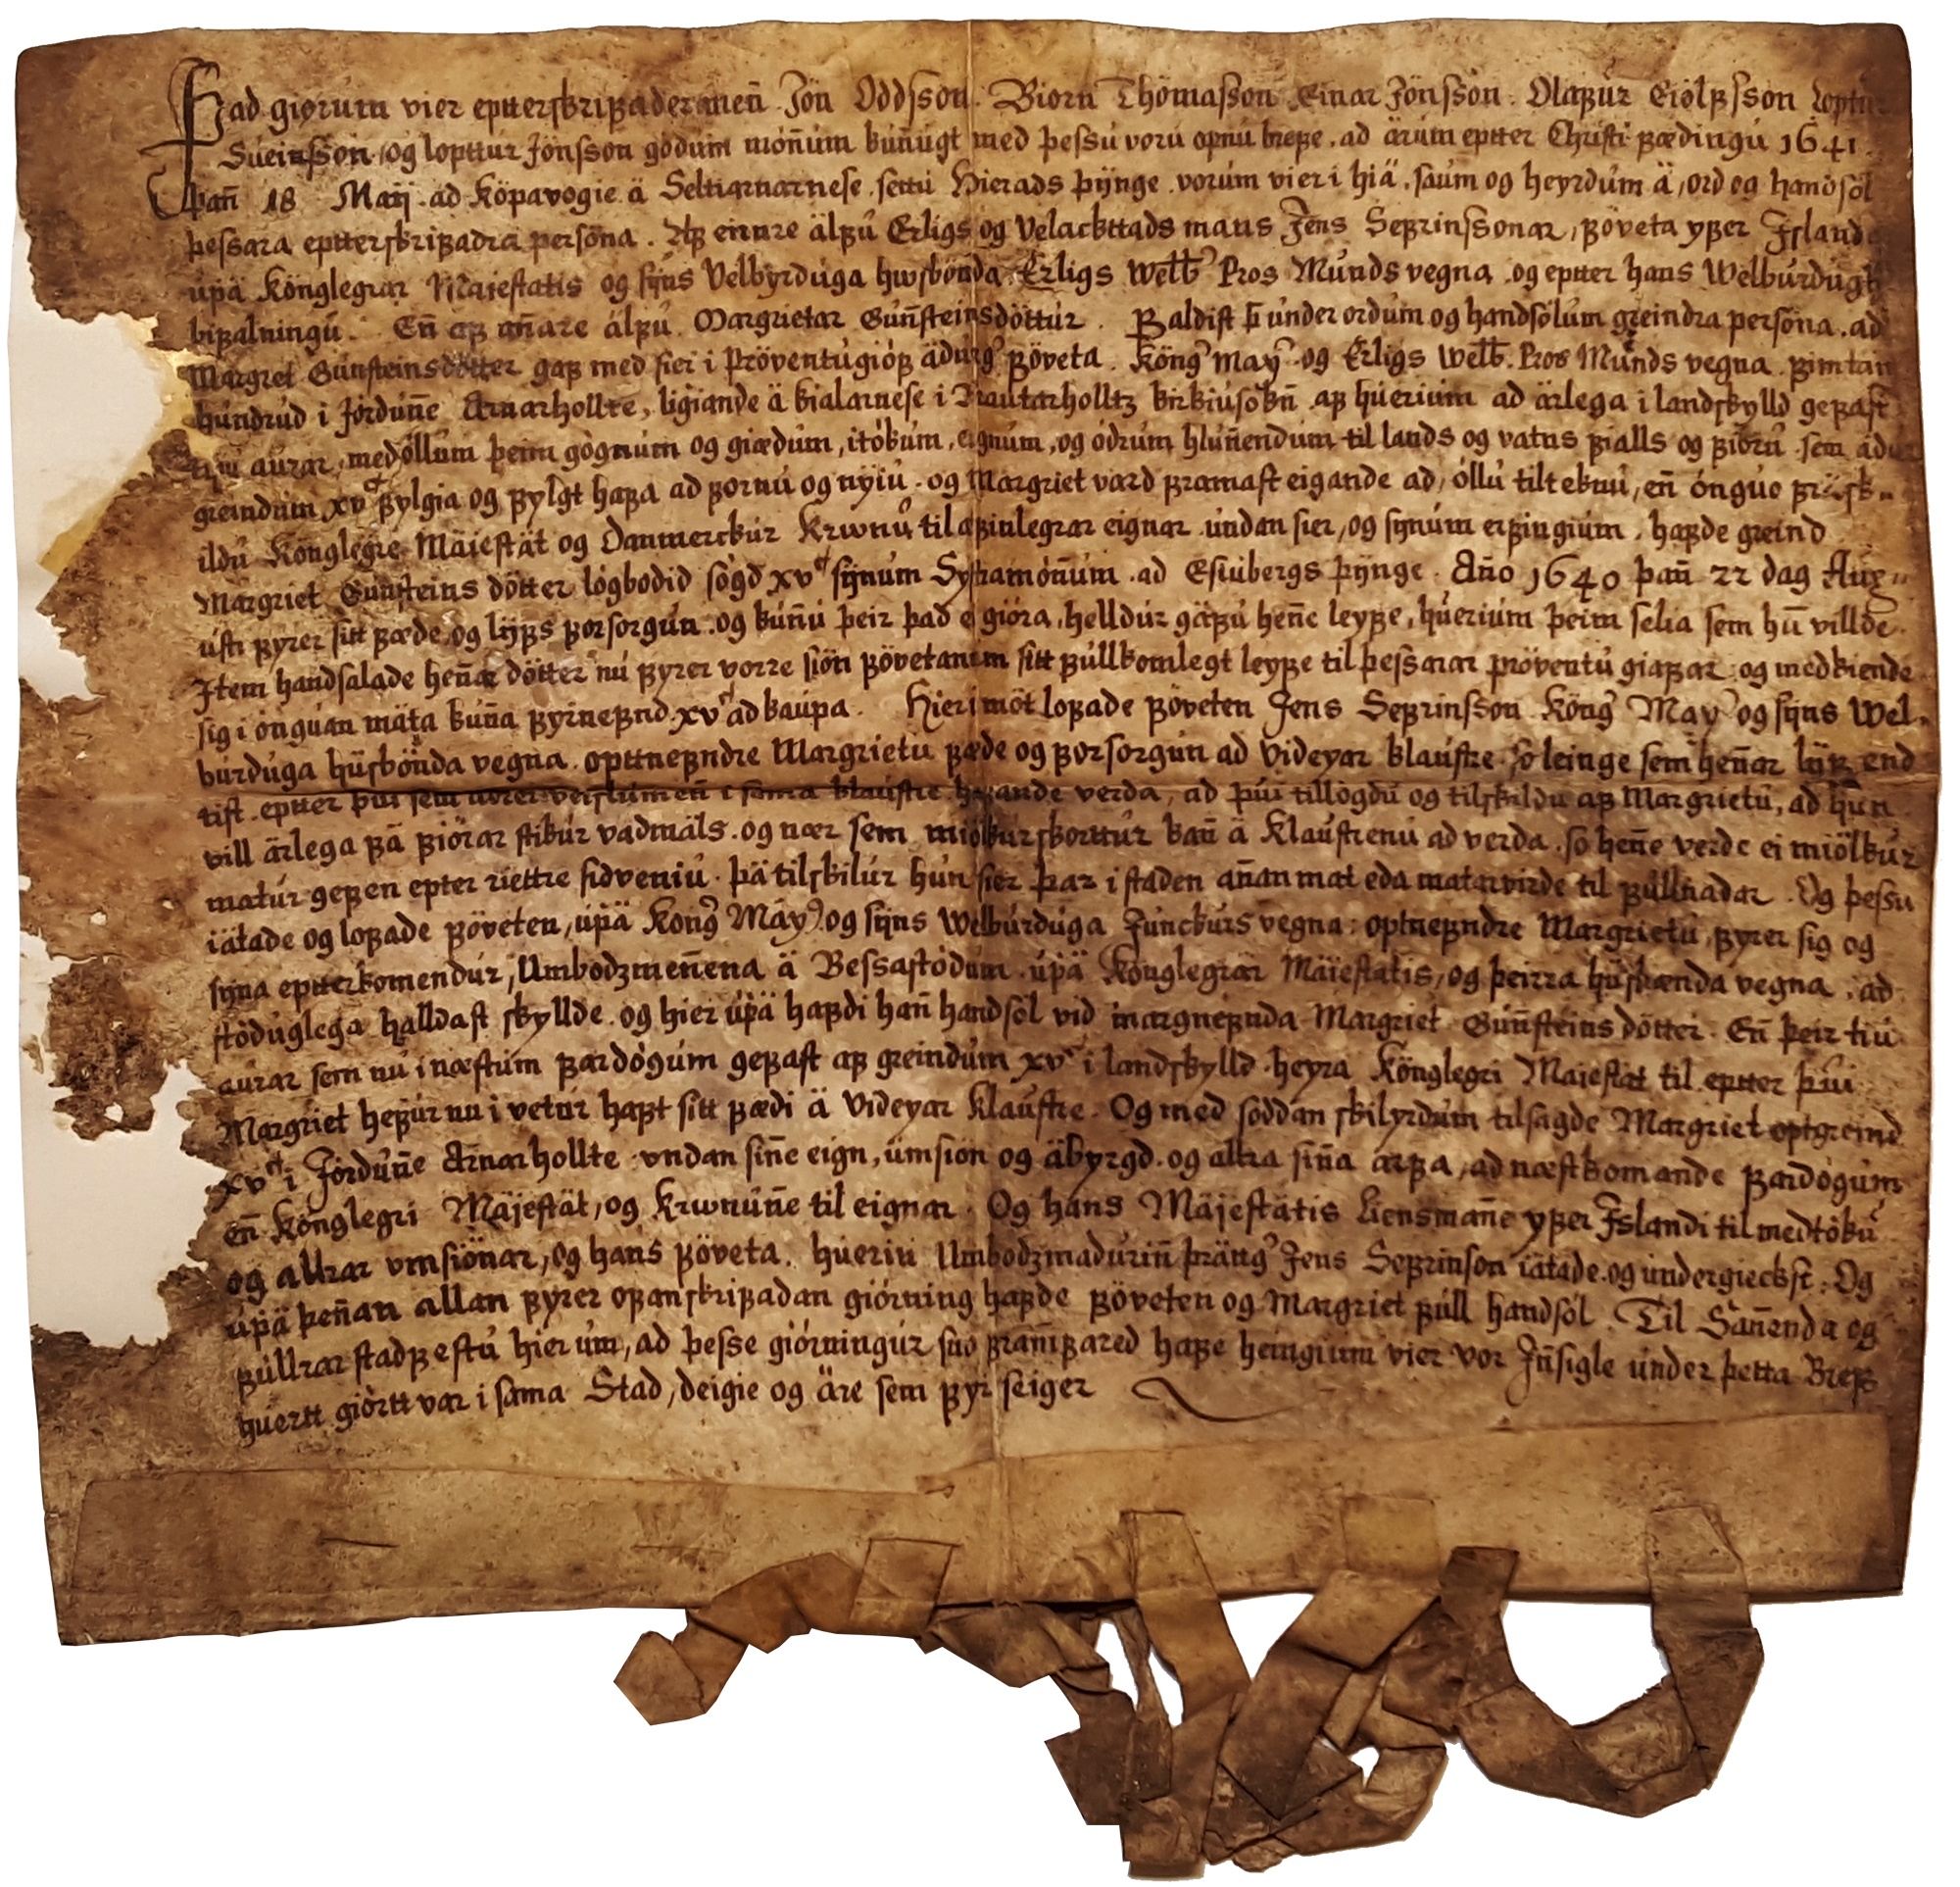 Þad giorum vier eptterskrifader menn Jön Oddsson. Biorn Thömasson Einar Jönsson. Olafur Eiölfsson Loptur
Sueinsson, og lopttur Jönsson gödum mönnum kunnugt med þessu voru opnu brefe. ad ärum eptter Christi fædingu 1641.
þann 18 Maij. ad Köpavogie ä Selttiarnarnese. settu Hierads þijnge. vorum vier i hiä, säum og heyrdum ä, ord og handsöl
þessara eptterskrifadra persöna. Af einnre älfu Erligs og Velackttads mans Jens Sefrinssonar, föveta yfer Jslande
uppä Könglegrar Maiestatis og sijns Velbyrduga hwsbönda Erligs Welb. Pros Munds vegna. og eptter hans Welburdugh
bifalningu. Enn af annare älfu. Margrietar Gunnsteinsdöttur. Faldist þ under ordum og handsölum greindra persöna. ad
Margriet Gunsteinsdötter gaf med sier i Pröventugiöf ädurgföveta. Köng May og Erligs Welb. Pros Munds vegna. fimtan
hundrud i Jördunne Arnarhollte, liggiande ä kialarnese i Brautarholltz kirkiusökn. af huerium ad ärlega i landskylld gefast
tiju aurar, med öllum þeim gögnum og giædum, itökum, eignum, og ödrum hlunnendum til lands og vatns fialls og fiöru. sem ädur
greindum xv fylgia og fylgt hafa ad fornu og nyiu. og Margriet vard framast eigande ad, öllu tilteknu, enn öngvo fräsk=
ildu Könglegre Mäiestät og Danmerckur Krwnu til æfinlegrar eignar. undan sier, og sijnum erfingium. hafde greind
Margriet Gunsteins dötter lögbodid sögd xv sijnum Syskamönnum. ad Esiubergs þijnge. Año 1640 þann 22 dag Aug=
usti fyrer sitt fæde, og lijfs forsorgun. og kunnu þeir þad ei giöra, helldur gäfu henne leyfe, huerium þeim selia sem hun villde.
Jtem handsalade hennar dötter nu fyrer vorre siön fövetanum sitt fullkomlegt leyfe til þessarar pröventu giafar. og medkiende
sig i önguan mäta kunna fyrnefnd xv ad kaupa. Hieri möt lofade föveten Jens Sefrinsson Köng May og sijns Wel=
burduga husbönda vegna. opttnefndre Margrietu fæde og forsorgun ad Videyar klaustre. so leinge sem hennar lijf end
tist. eptter þui sem adrer veislumenn i sama klaustre hafande verda, ad þui tillögdu og tilskildu af Margrietu, ad hun
vill ärlega fä fiörar stikur vadmäls. og nær sem miölkurskorttur kann ä Klaustrenu ad verda. so henne verde ei miölkur
matur gefen epter riettre sidveniu. þä tilskilur hun sier þar i staden annan mat eda matarvirde til fullnadar. Og þessu
iätade og lofade föveten, uppä Köng May. og sijns Welburduga Junckurs vegna: optnefndre Margrietu, fyrer sig og
sijna eptterkomendur, Umbodzmennena ä Bessastödum. uppä Könglegrar Mäiestatis, og þeirra husbænda vegna. ad
stöduglega halldast skyllde. og hier uppä hafdi hann handsöl vid margnefnda Margriet Gunnsteins dötter. Enn þeir tiu
aurar sem nu i næstum fardögum gefast af greindum xv i landskylld. heyra Könglegri Maiestät til. eptter þui
Margriet hefur nu i vetur haft sitt fædi ä Videyar Klaustre. Og med soddan skilyrdum tilsagde Margriet optgreind
xv i Jördunne Arnarhollte. undan sinne eign, umsiön og äbyrgd. og allra sinna arfa, ad næstkomande fardögum
enn Könglegri Mäjestät, og Krwnunne til eignar. Og hans Mäjestätis Liensmanne yfer Jslandi til medtöku
og allrar umsiönar, og hans föveta. hueriu Umbodzmadurinn fräng Jens Sefrinson iätade. og undergieckst. Og
uppä þennan allan fyrer ofanskrifadan giörning hafde föveten og Margriet full handsöl. Til Sannenda og
fullrar stadfestu hier um, ad þesse giörningur suo framfared hafe heingium vier vor Jnnsigle under þetta Bref
huertt giörtt var i sama Stad, deigie og äre sem fyr seiger